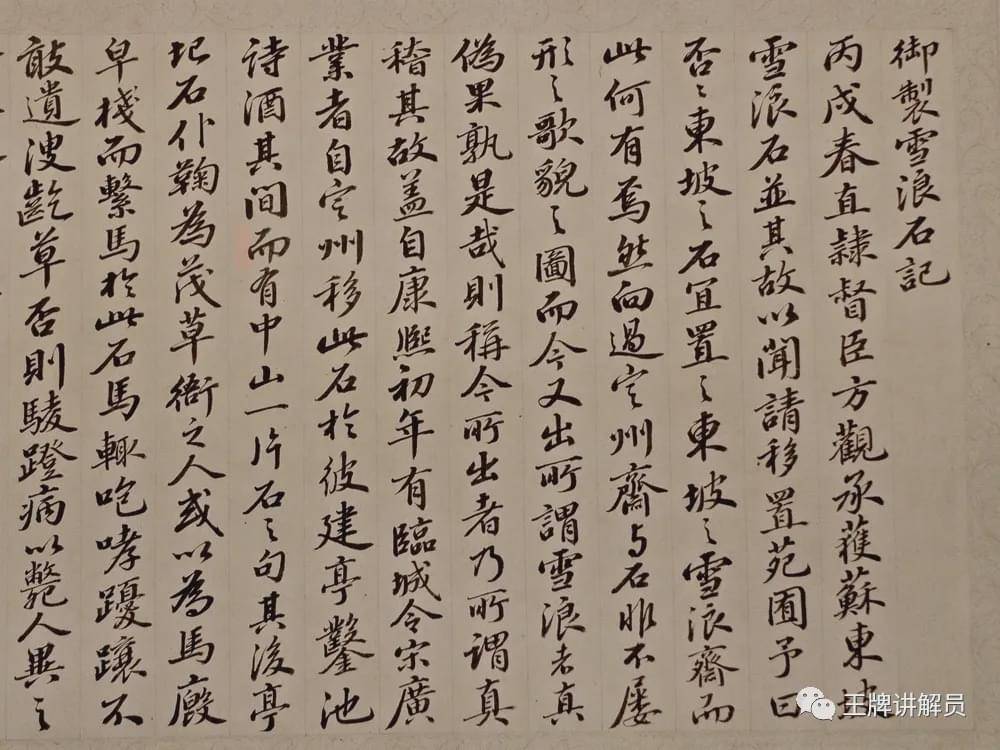 御製雪浪石記
丙戌春直隸督臣方觀承獲蘇東坡
雪浪石並其故以聞請移置苑囿予曰
否〻東坡之石宜置之東坡之雪浪齋而
此何有焉然向過定州齋与石非不屡
形之歌貌之圖而今又出所謂雪浪者真
偽果孰是哉則稱今所出者乃所謂真
稽其故盖自康熙初年有臨城令宋廣
業者自定州移此石於彼建亭鑿池
詩酒其間而有中山一片石之句其後亭
圮石仆鞠為茂草衙之人或以為馬廄
皁棧而繫馬於此石馬輙咆哮躩躟不
敢遺溲齕草否則蹬病以斃人異之
王牌讲解员